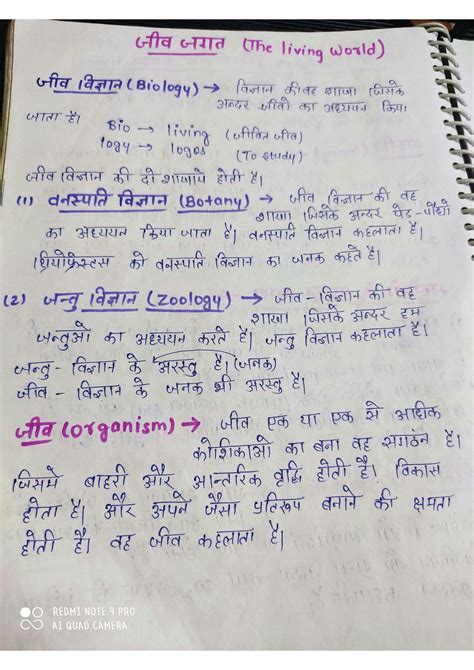 जीव जगत (The living World)
जीव विज्ञान (Biology) → विज्ञान की वह शाखा जिसके
अन्दर जीवों का अध्ययन किया
जाता है।
Bio → living (जीवित जीव)
logy → logos (To study)
जीव विज्ञान की दो शाखाये होती है।
(1) वनस्पति विज्ञान (Botany) → जीव विज्ञान की वह
शाखा जिसके अन्दर पेड़-पौधो
का अध्ययन किया जाता है। वनस्पति विज्ञान कहलाता है।
थ्रियोफ्रेस्टस को वनस्पति विज्ञान का जनक कहते है।
(2) जन्तु विज्ञान (Zoology) → जीव-विज्ञान की वह
शाखा जिसके अन्दर हम
जन्तुओ का अध्ययन करते है। जन्तु विज्ञान कहलाता है।
जन्तु-विज्ञान के अरस्तु है। (जनक)
जीव-विज्ञान के जनक भी अरस्तु है।
जीव (organism) → जीव एक या एक से अधिक
कोशिकाओ का बना वह संगठन है।
जिसमे बाहरी और आन्तरिक वृद्धि होती है। विकास
होता है। और अपने जैसा प्रतिरूप बनाने की क्षमता
होती है। वह जीव कहलाता है।
REDMI NOTE 9 PRO
AI QUAD CAMERA